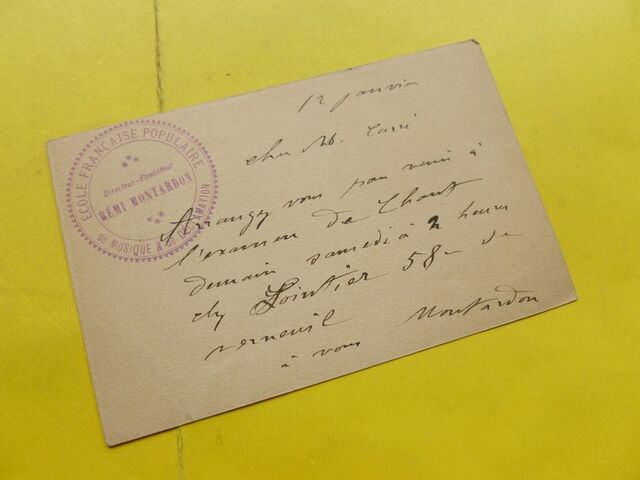 ÉCOLE FRANÇAISE POPULAIRE
Directeur-Fondateur
RÉMI MONTARDON
de MUSIQUE & de DÉCLAMATION
12 janvier
cher M. Carré
Arrangez vous pour venir à
l'examen de Chant
demain samedi à 2 heures
chez Lointier 58 - de
verneuil
à vous Montardon